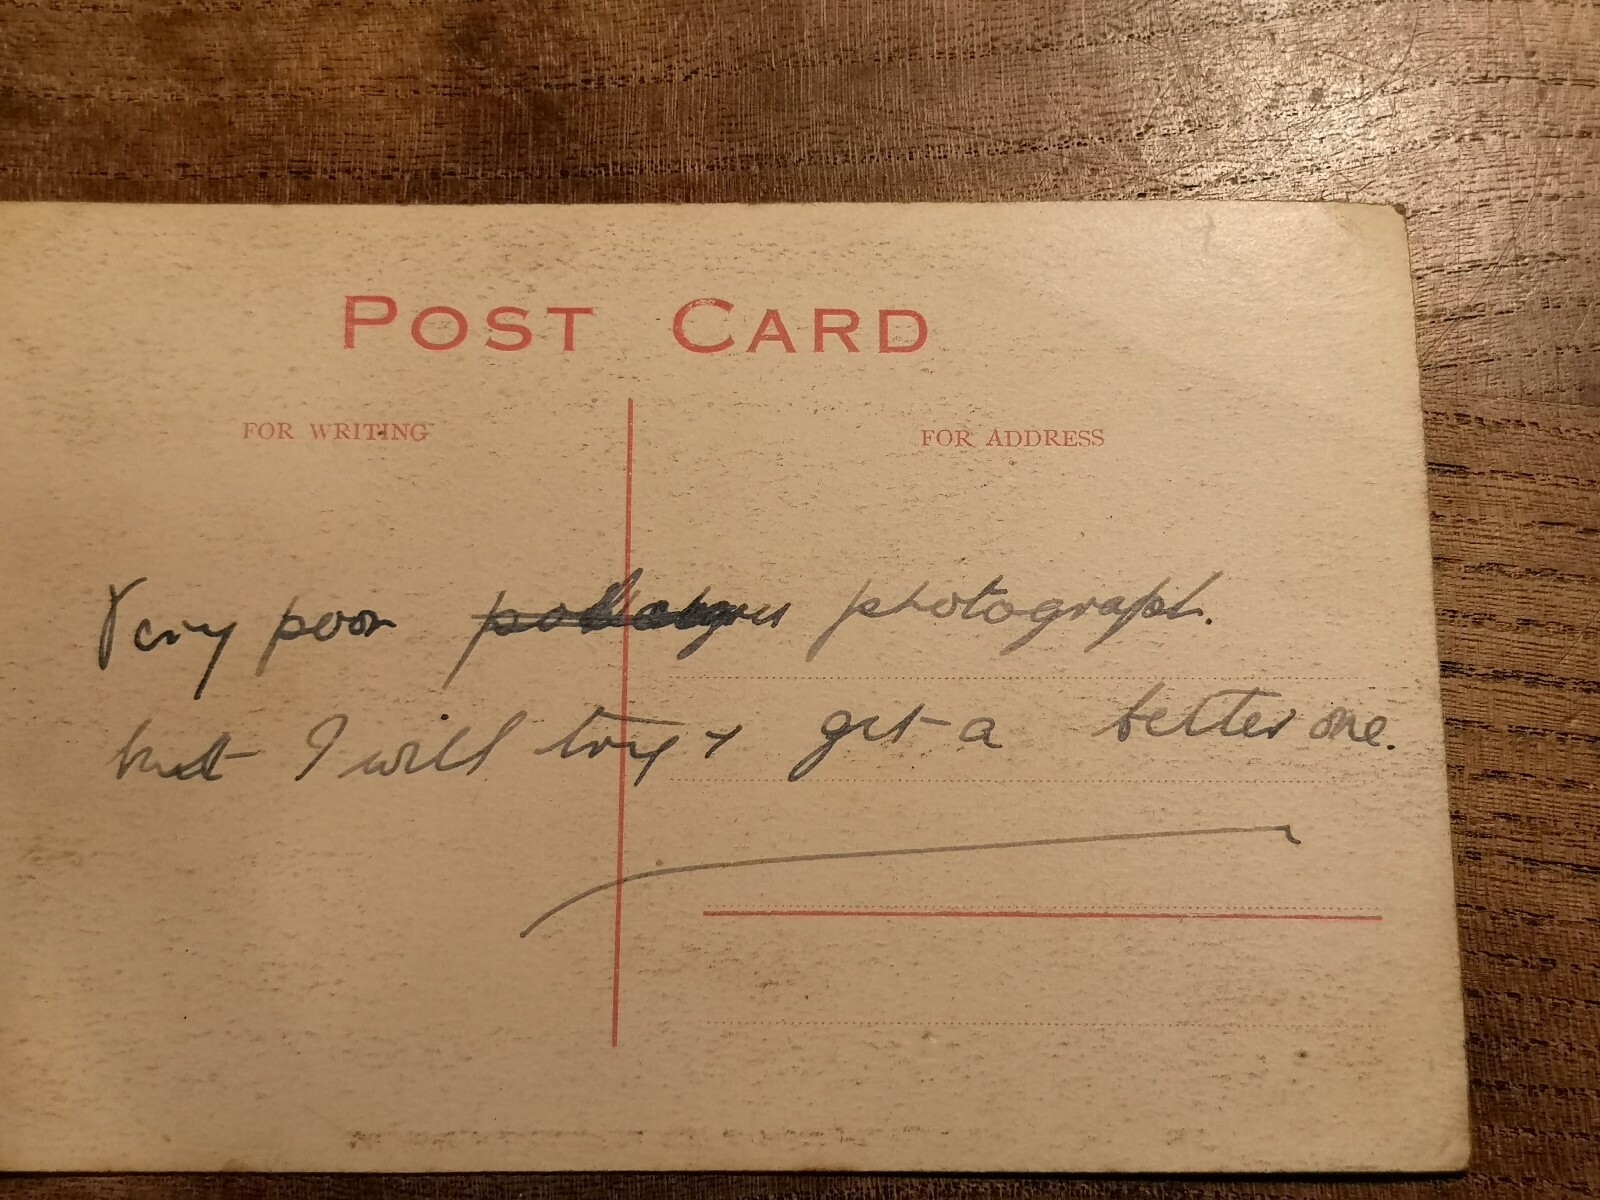 POST CARD
FOR WRITING
FOR ADDRESS
Very poor photograph.
but I will try + get a better one.